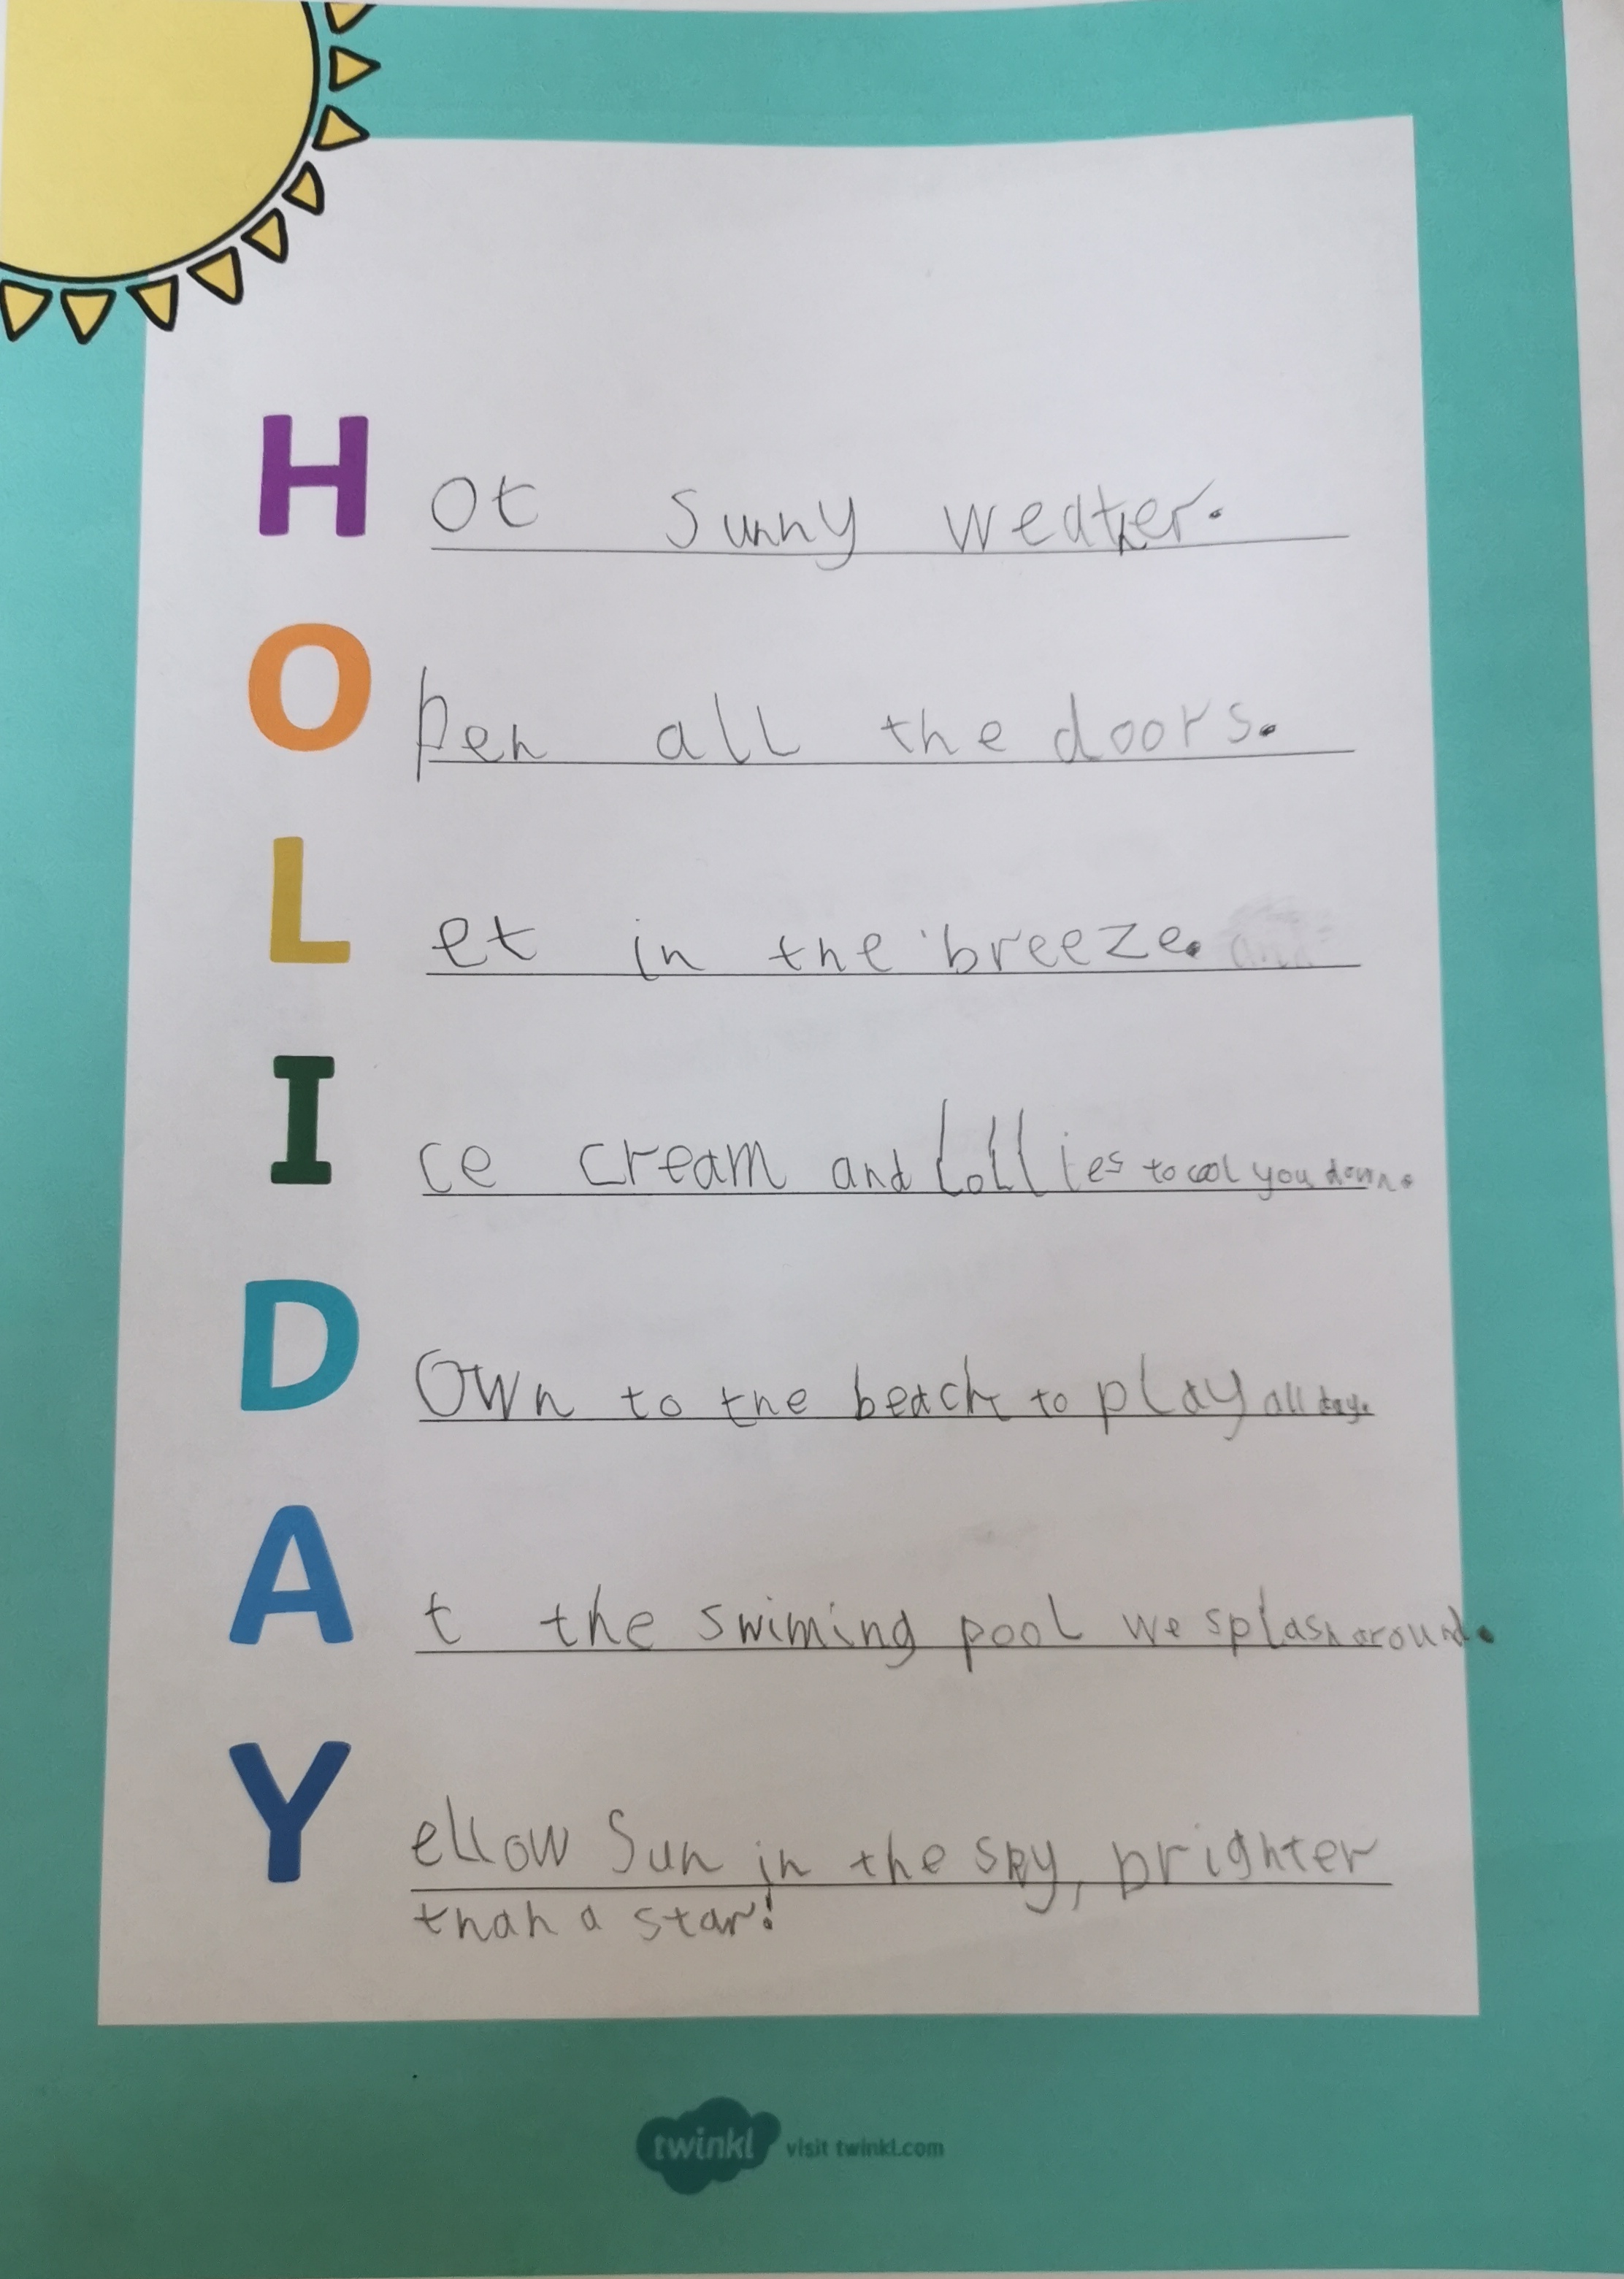 Hot sunny weather.
Open all the doors.
Let in the breeze.
Ice cream and Lollies to cool you down.
Down to the beach to play all day.
At the swiming pool we splash around.
Yellow Sun in the sky, brighter
than a star!
twinkl visit twinkl.com